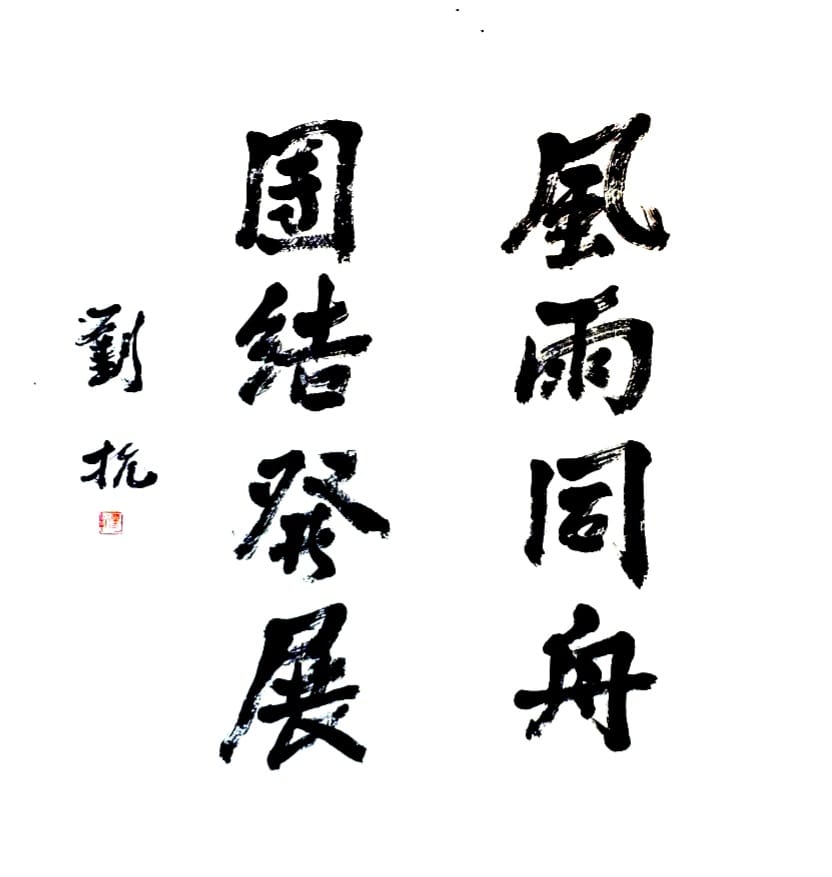 風雨同舟
團結發展
劉抗